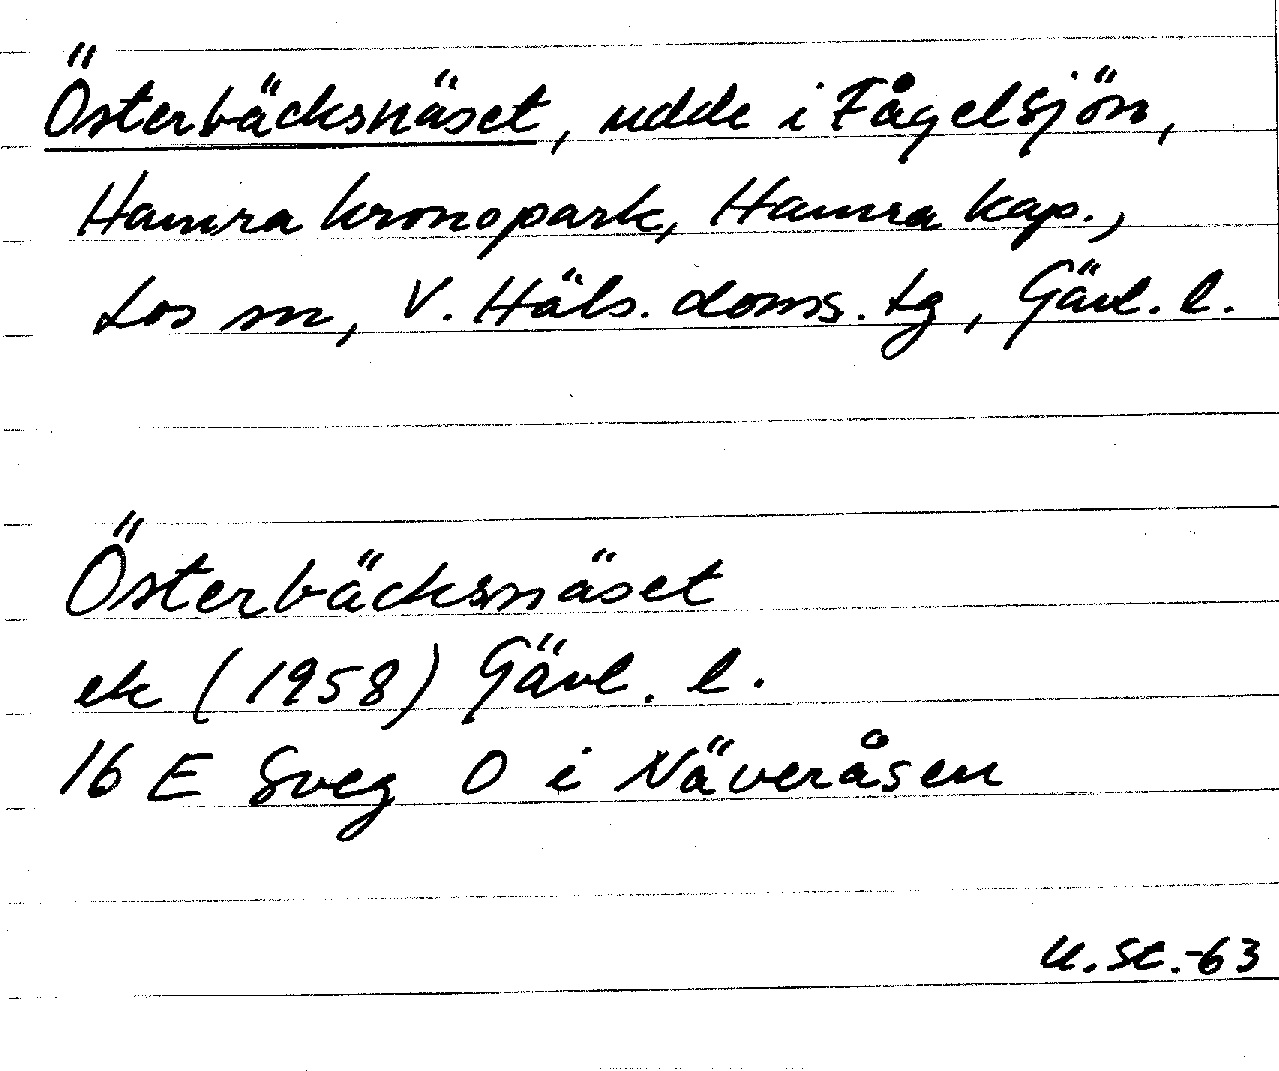 Österbäcksnäset, udde i Fågelsjön,
Hamra kronopark, Hamra kap.,
Los sn, V. Häls. doms. tg, Gävl. l.
Österbäcksnäset
ek (1958) Gävl. l.
16 E Sveg O i Näveråsen
U.St.-63